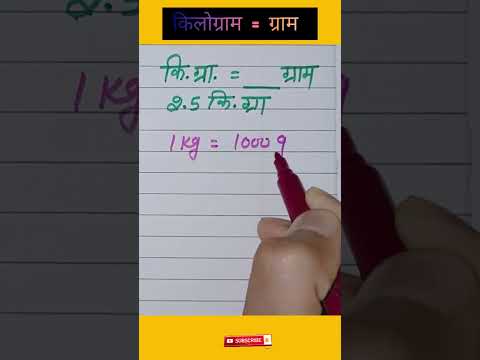 किलोग्राम = ग्राम
कि.ग्रा. = ___ ग्राम
2.5 कि.ग्रा
1 kg = 1000 g
SUBSCRIBE